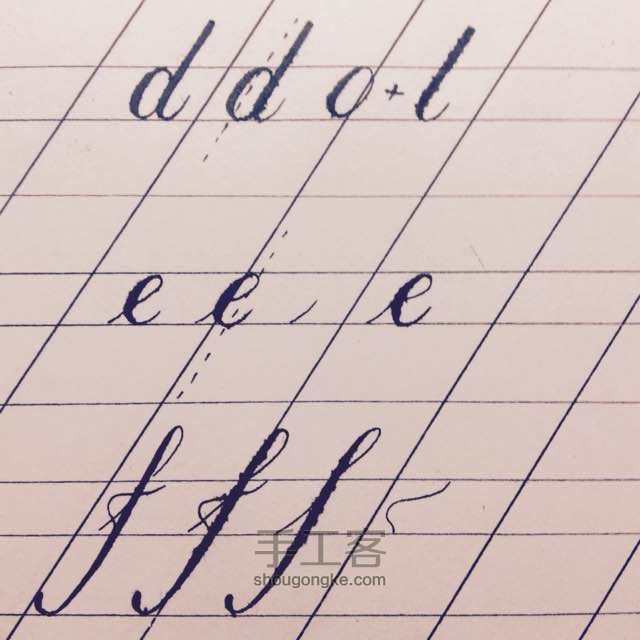 d d o + l
e e e
f f f
手工客
shougongke.com